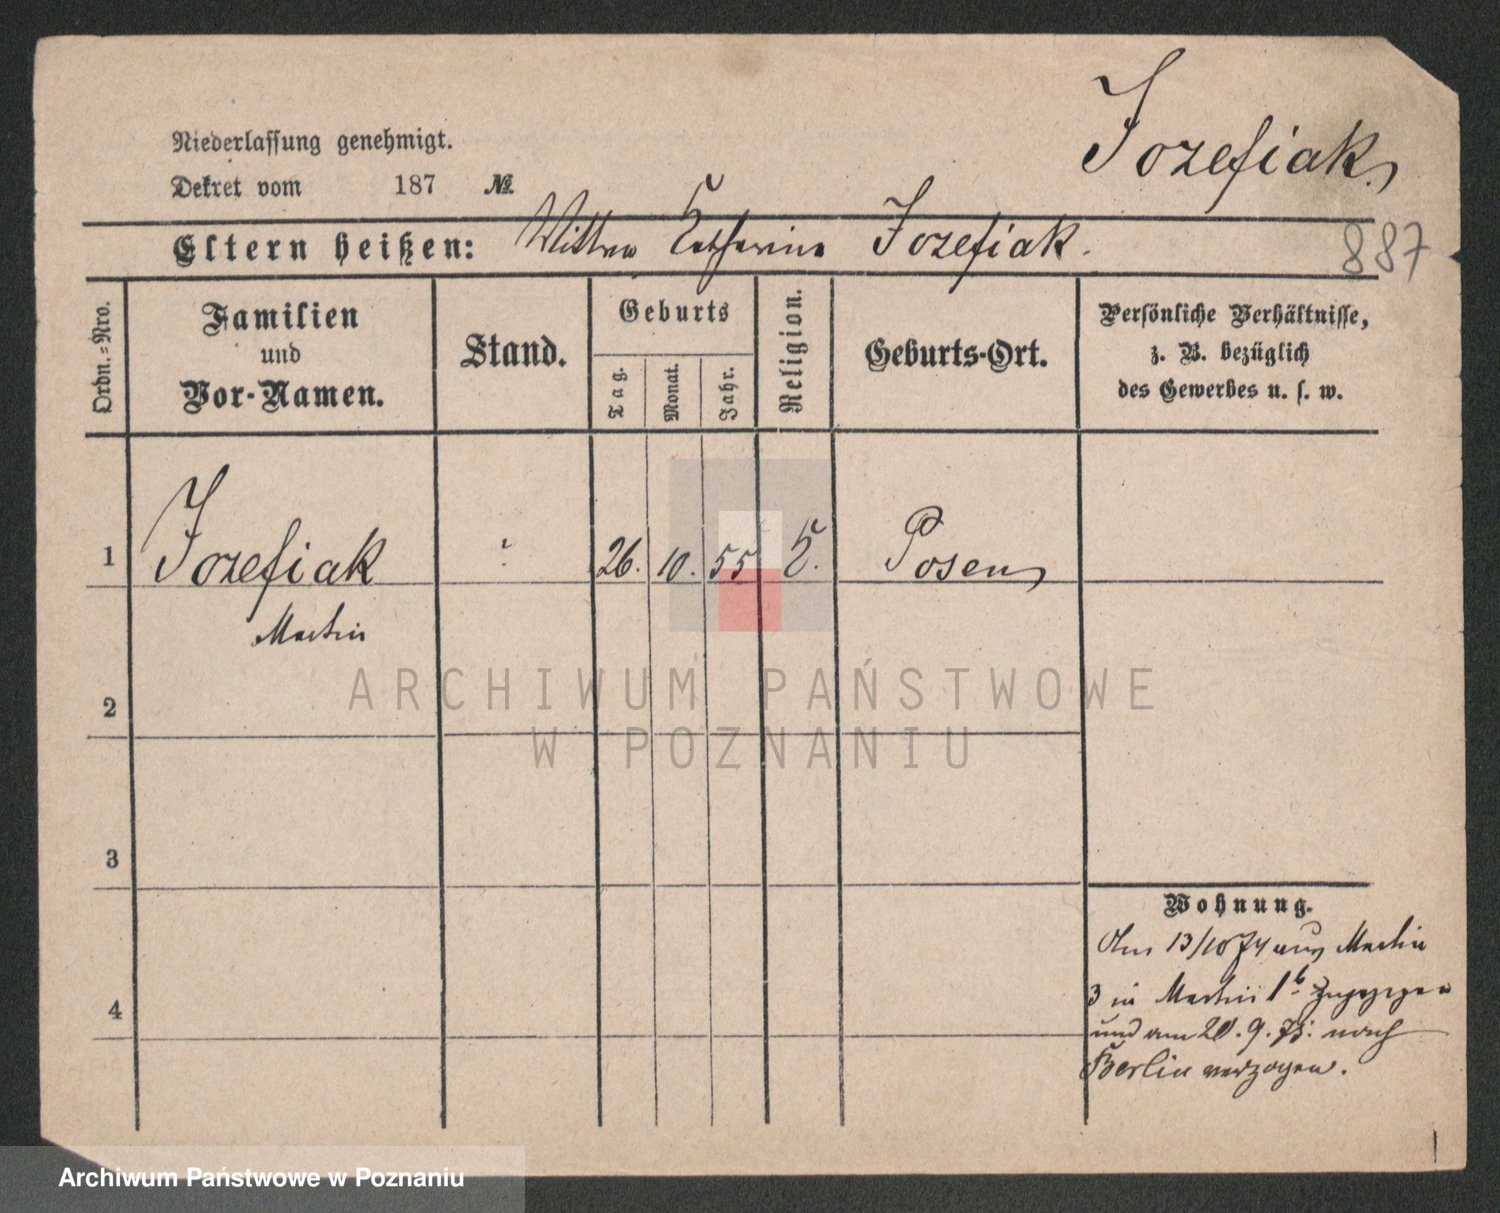 Jozefiak
Niederlassung genehmigt.
Dekret vom 187 №
Eltern heißen: Wittwe Katharina Jozefiak.
887
Ordn.-Nro.
Familien
und
Vor-Namen.
Stand.
Geburts
Tag.
Monat.
Jahr.
Religion.
Geburts-Ort.
Persönliche Verhältnisse,
z. B. bezüglich
des Gewerbes u. s. w.
1 Jozefiak 26. 10. 55 K. Posen
Martin
ARCHIWUM PAŃSTWOWE
W POZNANIU
2
3
4
Wohnung.
Am 13/10 74 aus Martin
3 in Martin 1b zugezogen
und am 20.9.75. nach
Berlin verzogen.
Archiwum Państwowe w Poznaniu